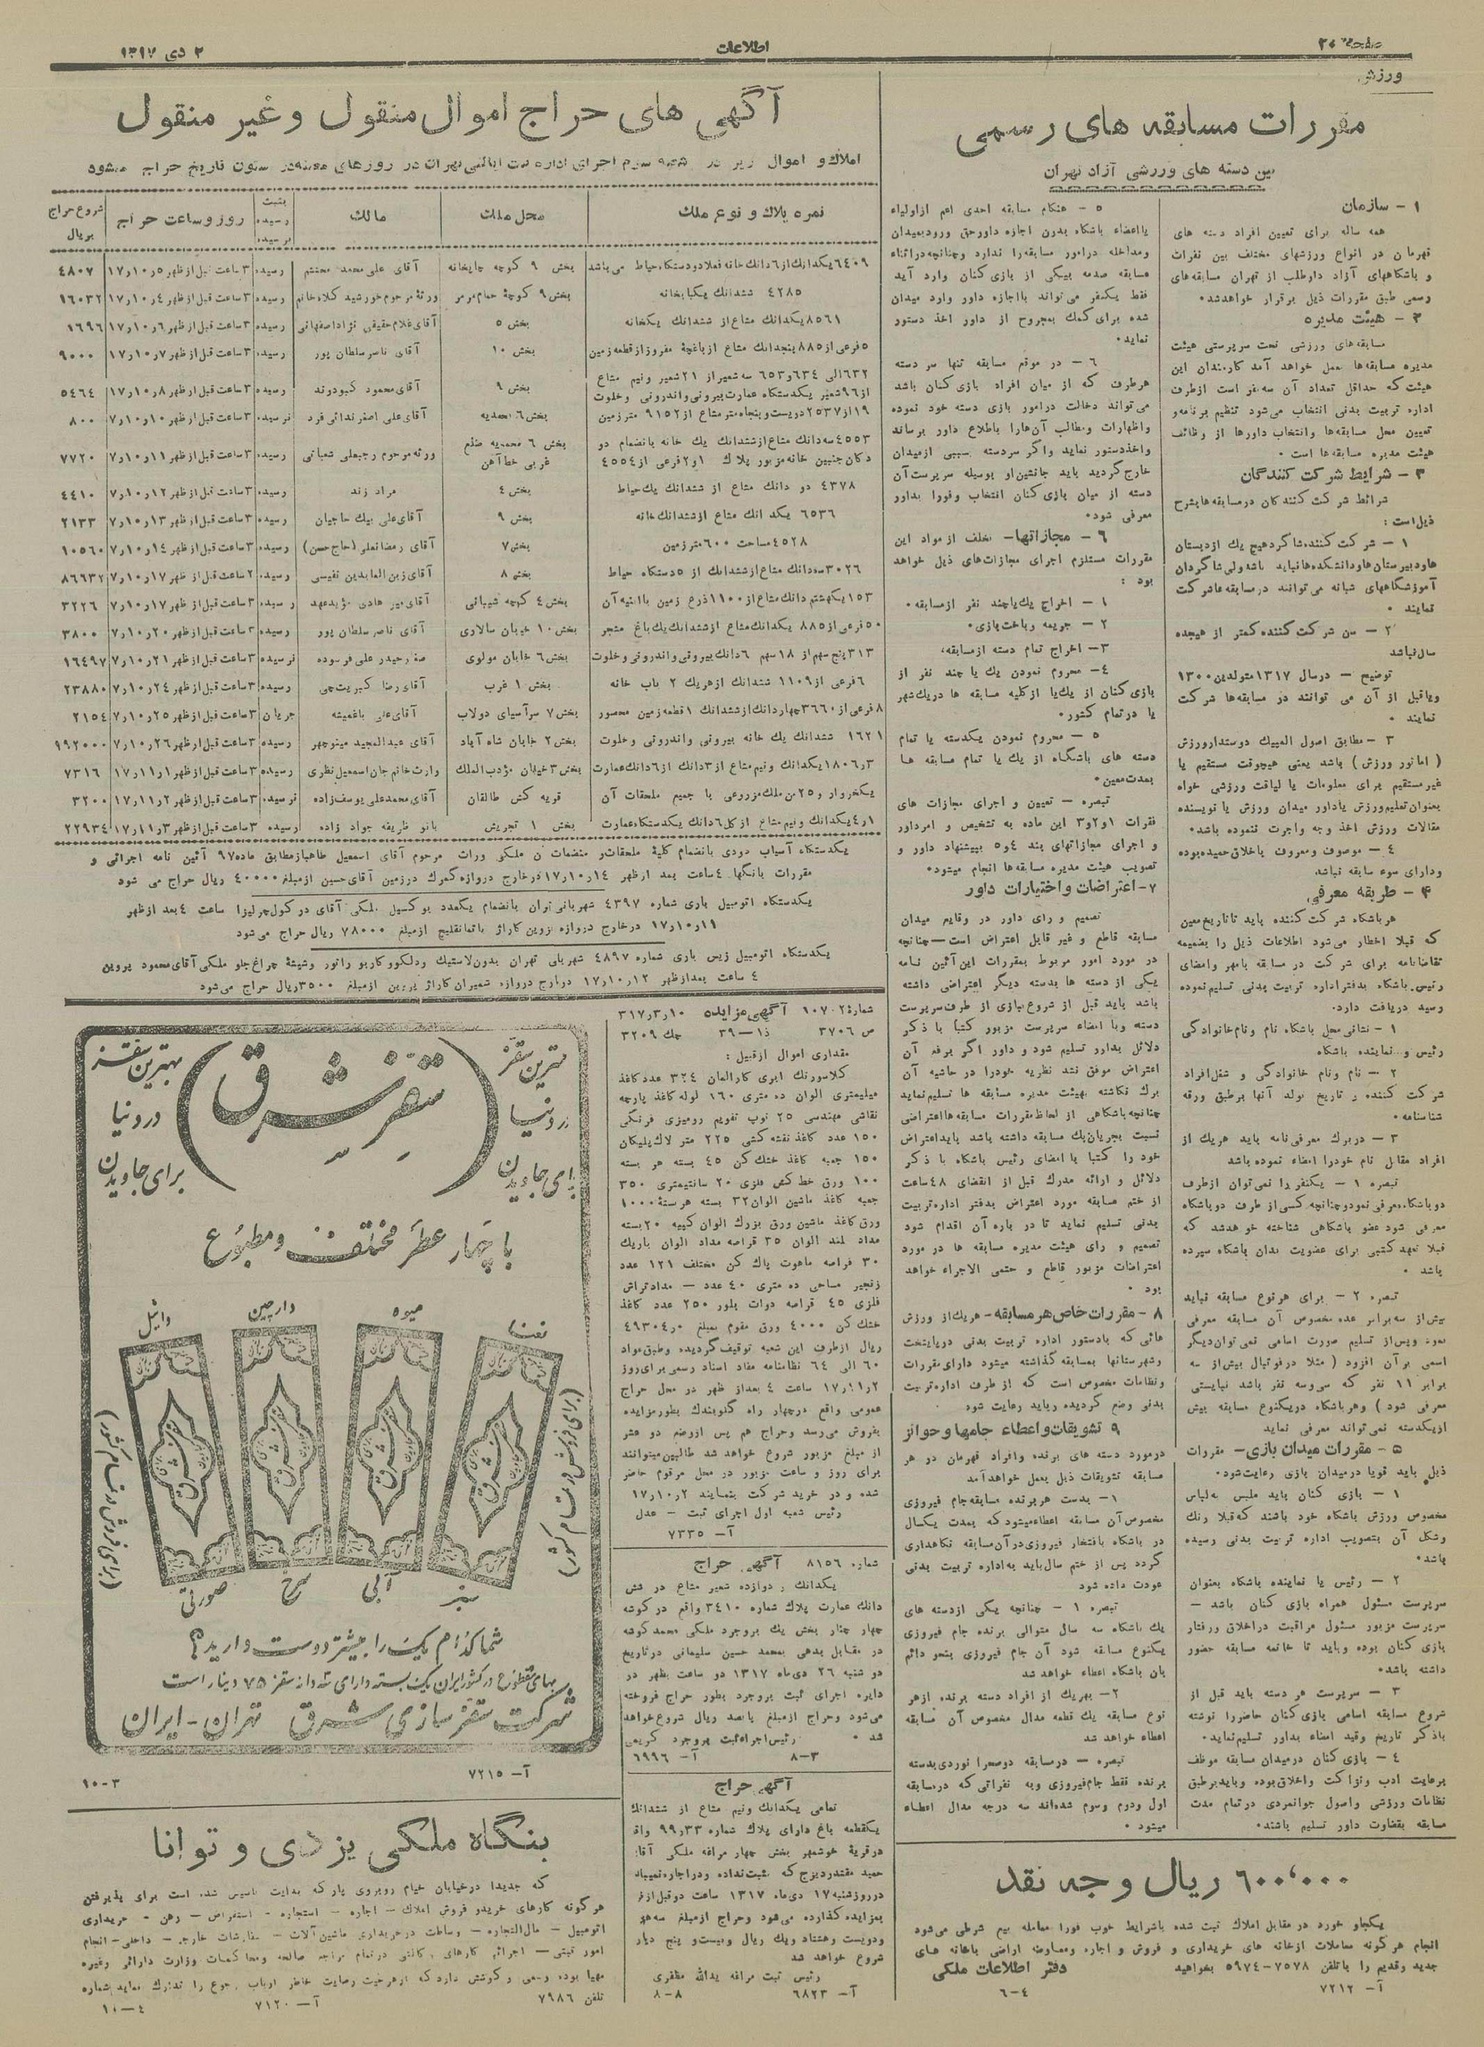 صفحه ۲۰
اطلاعات
۲ دی ۱۳۱۷
ورزش
مقررات مسابقه های رسمی
بین دسته های ورزشی آزاد تهران
۱ - سازمان
همه ساله برای تعیین افراد دسته های
قهرمان در انواع ورزشهای مختلف بین نفرات
و باشگاههای آزاد داوطلب از تهران مسابقه‌های
رسمی طبق مقررات ذیل برقرار خواهدشد۰
۲ - هیئت مدیره
مسابقه‌های ورزشی تحت سرپرستی هیئت
مدیره مسابقه‌ها بعمل خواهد آمد کارمندان این
هیئت که حداقل تعداد آن سه‌نفر است ازطرف
اداره تربیت بدنی انتخاب می‌شود تنظیم برنامه‌و
تعیین محل مسابقه‌ها وانتخاب داورها از وظائف
هیئت مدیره مسابقه‌ها است ۰
۳ - شرایط شرکت کنندگان
شرائط شرکت کنندگان درمسابقه‌ها بشرح
ذیل‌است :
۱ - شرکت کننده‌شاگردهیچ یك ازدبستان
هاودبیرستان‌هاودانشکده‌هانباید باشدولی‌شاگردان
آموزشگاههای شبانه می‌توانند درمسابقه‌هاشرکت
نمایند ۰
۲ - سن شرکت کننده کمتر از هیجده
سال‌نباشد
توضیح - درسال ۱۳۱۷متولدین۱۳۰۰
وماقبل از آن می توانند در مسابقه‌ها شرکت
نمایند ۰
۳ - مطابق اصول المپیك دوستدارورزش
(اماتور ورزش) باشد یعنی هیچوقت مستقیم یا
غیرمستقیم برای معلومات یا لیاقت ورزشی خواه
بعنوان‌تعلیم‌ورزش یاداور میدان ورزش یا نویسنده
مقالات ورزش اخذ وجه واجرت ننموده باشد۰
۴ - موصوف ومعروف باخلاق‌حمیده‌بوده
ودارای سوء سابقه نباشد
۴ - طریقه معرفی
هرباشگاه شرکت کننده باید تاتاریخ‌معین
که قبلا اخطار می‌شود اطلاعات ذیل رابضمیمه
تقاضانامه برای شرکت در مسابقه بامهر وامضای
رئیس باشگاه بدفتراداره تربیت بدنی تسلیم‌نموده
رسید دریافت دارد۰
۱ - نشانی محل باشگاه نام ونام‌خانوادگی
رئیس و نماینده باشگاه
۲ - نام ونام خانوادگی و شغل‌افراد
شرکت کننده و تاریخ تولد آنها برطبق ورقه
شناسنامه ۰
۳ - دربرك معرفی‌نامه باید هریك از
افراد مقابل نام خودرا امضاء نموده باشد
تبصره ۱ - یکنفر را نمی‌توان ازطرف
دوباشگاه معرفی نمودوچنانچه کسی از طرف دوباشگاه
معرفی شود عضو باشگاهی شناخته خواهدشد که
قبلا تعهد کتبی برای عضویت بدان باشگاه سپرده
باشد ۰
تبصره ۲ - برای هرنوع مسابقه نباید
بیش‌از سه‌برابر عده مخصوص آن مسابقه معرفی
نمود وپس‌از تسلیم صورت اسامی نمی‌توان‌دیگر
اسمی برآن افزود (مثلا درفوتبال بیش‌از سه
برابر ۱۱ نفر که سی‌وسه نفر باشد نبایستی
معرفی شود) وهرباشگاه دریکنوع مسابقه بیش
ازیکدسته نمی‌تواند معرفی نماید
۵ - مقررات میدان بازی- مقررات
ذیل باید قویا درمیدان بازی رعایت‌شود۰
۱ - بازی کنان باید ملبس به‌لباس
مخصوص ورزش باشگاه خود باشند که‌قبلا رنك
وشکل آن بتصویب اداره تربیت بدنی رسیده
باشد۰
۲ - رئیس یا نماینده باشگاه بعنوان
سرپرست مسئول همراه بازی کنان باشد -
سرپرست مزبور مسئول مراقبت دراخلاق ورفتار
بازی کنان بوده وباید تا خاتمه مسابقه حضور
داشته باشد۰
۳ - سرپرست هر دسته باید قبل از
شروع مسابقه اسامی بازی‌کنان حاضررا نوشته
باذکر تاریخ وقید امضاء بداور تسلیم‌نماید۰
۴ - بازی کنان درمیدان مسابقه موظف
برعایت ادب ونزاکت واخلاق‌بوده وبایدبرطبق
نظامات ورزشی واصول جوانمردی درتمام مدت
مسابقه بقضاوت داور تسلیم باشند۰
۵ - هنگام مسابقه احدی اعم ازاولیاء
یااعضاء باشگاه بدون اجازه داورحق ورودبمیدان
ومداخله درامور مسابقه‌را ندارد وچنانچه‌دراثناء
مسابقه صدمه بیکی از بازی‌کنان وارد آید
فقط یکنفر می‌تواند بااجازه داور وارد میدان
شده برای‌کمك بمجروح از داور اخذ دستور
نماید۰
۶ - در موقع مسابقه تنها سر دسته
هرطرف که از میان افراد بازی‌کنان باشد
می‌تواند دخالت درامور بازی دسته خود نموده
واظهارات ومطالب آن‌هارا باطلاع داور برساند
واخذدستور نماید واگر سردسته بسببی ازمیدان
خارج‌گردید باید جانشین‌او بوسیله سرپرست‌آن
دسته از میان بازی‌کنان انتخاب وفورا بداور
معرفی شود۰
۶ - مجازاتها- تخلف از مواد این
مقررات مستلزم اجرای مجازات‌های ذیل خواهد
بود :
۱ - اخراج یك‌یاچند نفر ازمسابقه۰
۲ - جریمه وباخت‌بازی۰
۳ - اخراج تمام دسته ازمسابقه۰
۴ - محروم نمودن یك یا چند نفر از
بازی‌کنان از یك‌یا ازکلیه مسابقه ها دریك‌شهر
یا درتمام کشور۰
۵ - محروم نمودن یکدسته یا تمام
دسته های باشگاه از یك یا تمام مسابقه ها
بمدت‌معین۰
تبصره - تعیین و اجرای مجازات های
فقرات ۱و۲و۳ این ماده به تشخیص و امرداور
و اجرای مجازاتهای بند ۴و۵ بپیشنهاد داور و
تصویب هیئت مدیره مسابقه‌ها انجام میشود۰
۷- اعتراضات واختیارات داور
تصمیم و رای داور در وقایع میدان
مسابقه قاطع و غیر قابل اعتراض است - چنانچه
در مورد امور مربوط بمقررات این‌آئین نامه
یکی از دسته ها بدسته دیگر اعتراضی داشته
باشد باید قبل از شروع ببازی از طرف‌سرپرست
دسته وبا امضاء سرپرست مزبور کتبا با ذکر
دلائل بداور تسلیم شود و داور اگر برفع آن
اعتراض موفق نشد نظریه خودرا در حاشیه آن
برك نگاشته بهیئت مدیره مسابقه ها تسلیم‌نماید
چنانچه‌باشگاهی از لحاظ‌مقررات مسابقه‌هااعتراضی
نسبت بجریان‌یك مسابقه داشته باشد بایداعتراض
خود را کتبا باامضای رئیس باشگاه با ذکر
دلائل و ارائه مدرك قبل از انقضای ۴۸ساعت
از ختم مسابقه مورد اعتراض بدفتر اداره‌تربیت
بدنی تسلیم نماید تا در باره آن اقدام شود
تصمیم و رای هیئت مدیره مسابقه ها در مورد
اعتراضات مزبور قاطع و حتمی الاجراء خواهد
بود ۰
۸ - مقررات خاص هرمسابقه- هریك‌از ورزش
هائی که بادستور اداره تربیت بدنی درپایتخت
وشهرستانها بمسابقه گذاشته میشود دارای‌مقررات
ونظامات مخصوص است که از طرف اداره‌تربیت
بدنی وضع گردیده وباید رعایت شود
۹ تشویقات‌واعطاء جامها وجوائز
درمورد دسته های برنده وافراد قهرمان در هر
مسابقه تشویقات ذیل بعمل خواهدآمد
۱- بدست هربرنده مسابقه‌جام فیروزی
مخصوص‌آن مسابقه اعطاءمیشودکه بمدت یکسال
در باشگاه بافتخار فیروزی‌درآن‌مسابقه نگاهداری
گردد پس از ختم سال‌باید به‌اداره تربیت بدنی
عودت داده شود
تبصره ۱ - چنانچه یکی ازدسته های
یك باشگاه سه سال متوالی برنده جام فیروزی
یکنوع مسابقه شود آن جام فیروزی بنحو دائم
بان باشگاه اعطاء خواهد شد
۲- بهریك از افراد دسته برنده ازهر
نوع مسابقه یك قطعه مدال مخصوص آن مسابقه
اعطاء خواهد شد
تبصره - درمسابقه دوصحرا نوردی‌بدسته
برنده فقط جام‌فیروزی وبه نفراتی که درمسابقه
اول ودوم وسوم شده‌اند سه درجه مدال اعطاء
میشود ۰
۶۰۰،۰۰۰ ریال وجه نقد
یکجاو خورد در مقابل املاك ثبت شده باشرایط خوب فورا معامله بیع شرطی می‌شود
انجام هرگونه معاملات ازخانه های خریداری و فروش و اجاره ومعاوضه اراضی باخانه های
جدید وقدیم را باتلفن ۷۵۷۸-۵۹۷۴ بخواهید
دفتر اطلاعات ملکی
آ- ۷۲۱۲
۶-۴
آگهی های حراج اموال منقول و غیر منقول
املاك و اموال زیر در شعبه سوم اجرای اداره ثبت ایالتی‌تهران در روزهای معینه‌در ستون تاریخ حراج میشود
نمره پلاك و نوع ملك
محل ملك
مالك
بثبت رسیده نرسیده
روز و ساعت حراج
شروع حراج بریال
۶۴۰۹یکدانك از۶دانك خانه فعلادودستگاه حیاط می‌باشد بخش ۹ کوچه چاپخانه آقای علی‌محمد محتشم رسیده ۳ساعت قبل‌ازظهر ۵ر۱۰ر۱۷ ۴۸۰۷
۴۲۸۵ ششدانك یکبابخانه بخش۹ کوچه حمام‌مرمر ورثه‌مرحوم‌خورشید کلاه‌خانم رسیده ۳ساعت قبل ازظهر ۴ر۱۰ر۱۷ ۱۶۰۳۲
۸۵۶۱یکدانك مشاع ازششدانك یکخانه بخش ۵ آقای‌غلام‌حقیقی نژاداصفهانی رسیده ۳ساعت قبل ازظهر۶ر۱۰ر۱۷ ۱۶۹۶
۵فرعی از۸۸۵پنجدانك مشاع ازباغچه مفروزازقطعه‌زمین بخش ۱۰ آقای ناصرسلطان پور رسیده ۳ساعت قبل ازظهر۷ر۱۰ر۱۷ ۹۰۰۰
۶۳۲الی ۶۳۴و۶۵۳ سه‌شعیراز ۲۱شعیر ونیم مشاع
از۹۶شعیر یکدستگاه عمارت‌بیرونی‌واندرونی وخلوت بخش ۹ آقای‌محمود کبودوند رسیده ۳ساعت قبل‌ازظهر۸ر۱۰ر۱۷ ۵۴۶۴
۱۹از۲۵۳۷دویست‌وپنجاه‌مترمشاع از۹۱۵۲مترزمین بخش۶ احمدیه آقای‌علی اصغرندائی فرد نرسیده ۳ساعت قبل ازظهر۱۰ر۱۰ر۱۷ ۸۰۰
۴۵۵۳سه‌دانك مشاع ازششدانك یك خانه بانضمام دو
دکان‌جنبین خانه‌مزبورپلاك ۱و۲فرعی از۴۵۵۴ بخش ۶ محمدیه ضلع غربی خط‌آهن ورثه‌مرحوم رجبعلی شعبانی رسیده ۳ساعت قبل ازظهر۱۱ر۱۰ر۱۷ ۷۷۲۰
۴۳۷۸ دو دانك مشاع از ششدانك یك‌حیاط بخش ۴ مراد زند رسیده ۳ساعت قبل ازظهر۱۲ر۱۰ر۱۷ ۴۴۱۰
۶۵۳۶ یکدانك مشاع ازششدانك خانه بخش ۹ آقای‌علی بیك حاجیان رسیده ۳ساعت قبل ازظهر۱۳ر۱۰ر۱۷ ۲۱۳۳
۴۵۲۸مساحت ۶۰۰مترزمین بخش۷ آقای رمضانعلی(حاج‌حسن) رسیده ۳ساعت قبل ازظهر۱۴ر۱۰ر۱۷ ۱۰۵۶۰
۳۰۲۶سه‌دانك مشاع‌ازششدانك از ۵دستگاه حیاط بخش ۸ آقای‌زین‌العابدین نفیسی رسیده ۲ساعت‌قبل‌ازظهر۱۷ر۱۰ر۱۷ ۸۶۶۳۲
۱۵۳یکهشتم‌دانك‌مشاع‌از۱۱۰۰ذرع زمین بااعیانیه آن بخش ۴ کوچه شیبانی آقای‌میر هادی مؤیدعهد رسیده ۳ساعت‌قبل ازظهر۱۷ر۱۰ر۱۷ ۳۲۲۶
۵۰فرعی از۸۸۵یکدانك مشاع ازششدانك‌یك‌باغ مشجر بخش ۱۰ خیابان سالاری آقای ناصرسلطان پور رسیده ۳ساعت‌قبل ازظهر۲۰ر۱۰ر۱۷ ۳۸۰۰
۳۱۳پنج‌سهم‌از ۱۸ سهم ۶دانك‌بیرونی‌واندرونی وخلوت بخش ۶ خیابان مولوی صفرحیدر علی‌فرسوده نرسیده ۳ساعت‌قبل ازظهر۲۱ر۱۰ر۱۷ ۱۶۴۹۷
۶فرعی از۱۱۰۹ ششدانك ازهریك ۲ باب خانه بخش ۱ غرب آقای‌رضا کبریت‌چی رسیده ۳ساعت قبل ازظهر۲۴ر۱۰ر۱۷ ۲۳۸۸۰
۸فرعی از۳۶۶۰چهاردانك‌ازششدانك ۱قطعه‌زمین محصور بخش ۷ سرآسیای دولاب آقای‌علی باغمیشه جریان ۳ساعت‌قبل ازظهر۲۵ر۱۰ر۱۷ ۲۱۵۴
۱۶۲۱ ششدانك یك خانه بیرونی واندرونی وخلوت بخش۲ خیابان شاه‌آباد آقای عبدالمجید مینوچهر رسیده ۳ساعت‌قبل ازظهر۲۶ر۱۰ر۱۷ ۹۹۲۰۰۰
۳ر۱۸۰۶یکدانك ونیم‌مشاع از۳دانك از۶دانك‌عمارت بخش۳خیابان مؤدب‌الملك وارث‌خانم‌جان‌اسمعیل‌نظری رسیده ۳ساعت‌قبل ازظهر۱ر۱۱ر۱۷ ۷۳۱۶
یکخروارو۲۵من‌ملك‌مزروعی با جمیع ملحقات آن قریه کش طالقان آقای‌محمدعلی یوسف‌زاده نرسیده ۳ساعت‌قبل ازظهر۲ر۱۱ر۱۷ ۳۲۰۰
۱ر۴یکدانك ونیم‌مشاع ازکل۶دانك یکدستگاه‌عمارت بخش ۱ تجریش بانو ظریفه جواد زاده رسیده ۳ساعت‌قبل ازظهر۳ر۱۱ر۱۷ ۲۲۹۳۴
یکدستگاه آسیاب دودی بانضمام کلیه ملحقات‌و منضمات آن ملکی وراث مرحوم آقای اسمعیل طاهبازمطابق ماده۹۷ آئین نامه اجرائی و
مقررات بانکها، ۴ساعت بعد ازظهر ۱۴ر۱۰ر۱۷درخارج دروازه‌گمرك درزمین آقای‌حسین ازمبلغ ۴۰۰۰۰ ریال حراج می شود
یکدستگاه اتومبیل باری شماره ۴۳۹۷ شهربانی‌تهران بانضمام یکعدد بوکسیل ملکی آقای درکول‌چرلیزا ساعت ۴بعد ازظهر
۱۹ر۱۰ر۱۷ درخارج دروازه قزوین گاراژ باتمانقلیج ازمبلغ ۷۸۰۰۰ ریال حراج می‌شود
یکدستگاه اتومبیل زیس باری شماره ۴۸۹۷ شهربانی تهران بدون‌لاستیك ودلکووکاربو راتور وشیشهٔ چراغ‌جلو ملکی آقای‌محمود پروین
۴ ساعت بعدازظهر ۱۲ر۱۰ر۱۷ درخارج دروازه شمیران گاراژ پروین ازمبلغ ۳۵۰۰ریال حراج می‌شود
شماره ۱۰۷۰۲ آگهی مزایده ۱۰ر۳ر۳۱۷
ص ۳۷۰۶ ذا—۳۹ چك ۳۲۰۹
مقداری اموال ازقبیل:
میلیمتری الوان ده متری ۱۶۰ لوله کاغذ پارچه
نقاشی مهندسی ۲۵ توپ تقویم رومیزی فرنگی
۱۵۰ عدد کاغذ نقشه کشی ۲۲۵ متر لاك‌پلیکان
۱۵۰ جعبه کاغذ خشك‌کن ۴۵ بسته هر بسته
۱۰۰ ورق خط‌کش فلزی ۲۰ سانتیمتری ۳۵۰
جعبه کاغذ ماشین الوان۳۲ بسته هربستهٔ۱۰۰۰
ورق‌کاغذ ماشین ورق بزرك الوان کپیه ۲۰بسته
مداد لمند الوان ۳۵ قراصه مداد الوان باریك
۳۰ قراصه ماهوت پاك کن مختلف ۱۲۱ عدد
زنجیر مساحی ده متری ۴۰ عدد - مدادتراش
فلزی ۴۵ قراصه دوات بلور ۲۵۰ عدد کاغذ
خشك کن ۴۰۰۰ ورق مقوم بمبلغ ۰ر۴۹۳۰۴
ریال ازطرف این شعبه توقیف‌گردیده وطبق‌مواد
۶۰ الی ۶۴ نظامنامه مفاد اسناد رسمی برای‌روز
۲ر۱۱ر۱۷ ساعت ۴ بعداز ظهر در محل حراج
عمومی واقع درچهار راه گلوبندك بطورمزایده
بفروش می‌رسد وحراج هم پس ازوضع دو عشر
از مبلغ مزبور شروع خواهد شد طالبین‌میتوانند
برای روز و ساعت مزبور در محل مرقوم حاضر
شده و در خرید شرکت بنمایند ۲ر۱۰ر۱۷
رئیس شعبه اول اجرای ثبت - عدل
آ- ۷۳۳۵
شماره ۸۱۵۶ آگهی حراج
یکدانك و دوازده شعیر مشاع در شش
دانك عمارت پلاك شماره ۳۴۱۰ واقع درکوشه
چهار چنار بخش یك بروجرد ملکی محمد کوشه
در مقابل بدهی بمحمد حسین سلیمانی درتاریخ
دو شنبه ۲۶ دی‌ماه ۱۳۱۷ دو ساعت بظهر در
دایره اجرای ثبت بروجرد بطور حراج فروخته
می‌شود وحراج ازمبلغ پانصد ریال شروع‌خواهد
شد ۰ رئیس‌اجراءثبت بروجرد کریمی
۸-۳ آ- ۶۹۹۶
آگهی حراج
تمامی یکدانك ونیم مشاع از ششدانك
یکقطعه باغ دارای پلاك شماره ۳۳ر۹۹ واقع
درقریهٔ خوشمهر بخش چهار مراغه ملکی آقای
حمید مقتدردیزج که ثبت‌نداده ودراجاره‌نمیباشد
درروزشنبه ۱۷ دی‌ماه ۱۳۱۷ ساعت دوقبل‌ازظهر
بمزایده گذارده می‌شود وحراج ازمبلغ سه‌هزار
ودویست وهشتاد ویك ریال وبیست‌و پنج دینار
شروع خواهد شد
رئیس ثبت مراغه یدالله مظفری
آ- ۶۸۲۳ ۸-۸
بهترین سقز
در دنیا
برای جاویدن
(سقز شرق)
بهترین سقز
در دنیا
برای جاویدن
با چهار عطر مختلف و مطبوع
نعنا
میوه
دارچین
وانیل
سقز شرق
سقز شرق
سقز شرق
سقز شرق
سبز
آبی
سرخ
صورتی
(برای فروش در تمام کشور)
(برای فروش در تمام کشور)
شما کدام یك را بیشتر دوست دارید؟
بهای مقطوع در کشور ایران یك بسته دارای شش دانه سقز ۷۵ دینار است
شرکت سقز سازی شرق تهران - ایران
آ- ۷۲۱۵
۱۰-۳
بنگاه ملکی یزدی و توانا
که جدیدا درخیابان خیام روبروی پارك هدایت تاسیس شده است برای پذیرفتن
هرگونه کارهای خریدو فروش املاك - اجاره - استجاره - استقراض - رهن - خریداری
اتومبیل - مال‌التجاره - وساطت درخریداری ماشین‌آلات - سفارشات خارجی - داخلی - انجام
امور ثبتی - اجرائی کارهای وکالتی درتمام مراجع صالحه ومحاکمات وزارت دارائی وغیره
مهیا بوده وسعی وکوشش دارد که ازهرحیث رضایت خاطر ارباب رجوع را تدارك نماید شماره
تلفن ۷۹۸۶ آ- ۷۱۲۰ ۱۰-۴